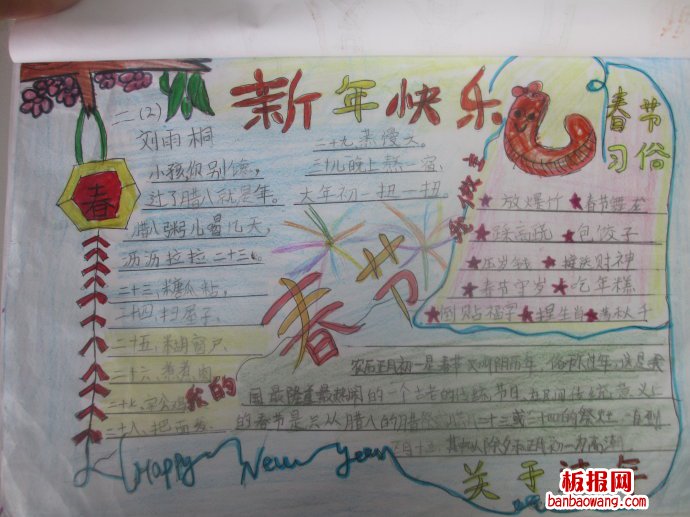 新年快乐
二(2)
刘雨桐
小孩你别馋,
过了腊八就是年。
腊八粥儿喝几天,
沥沥拉拉二十三。
二十三、糖瓜粘,
二十四、扫屋子
二十五、糊窗户
二十六、煮煮肉
二十七、宰公鸡
二十八、把面发
二十九蒸馒头。
三十儿晚上熬一宿
大年初一扭一扭
春
春节
我的
春节习俗
放爆竹 春节舞龙
踩高跷 包饺子
压岁钱 接送财神
春节守岁 吃年糕
倒贴福字 捏生肖 荡秋千
农历正月初一是春节又叫阴历年,俗称过年,这是我
国最隆重最热闹的一个古老的传统节日,在民间传统意义上
的春节是从腊八的腊祭腊月二十三或二十四的祭灶,直到
正月十五,其中以除夕和正月初一为高潮
Happy New Year
关于
板报网
banbaowang.com